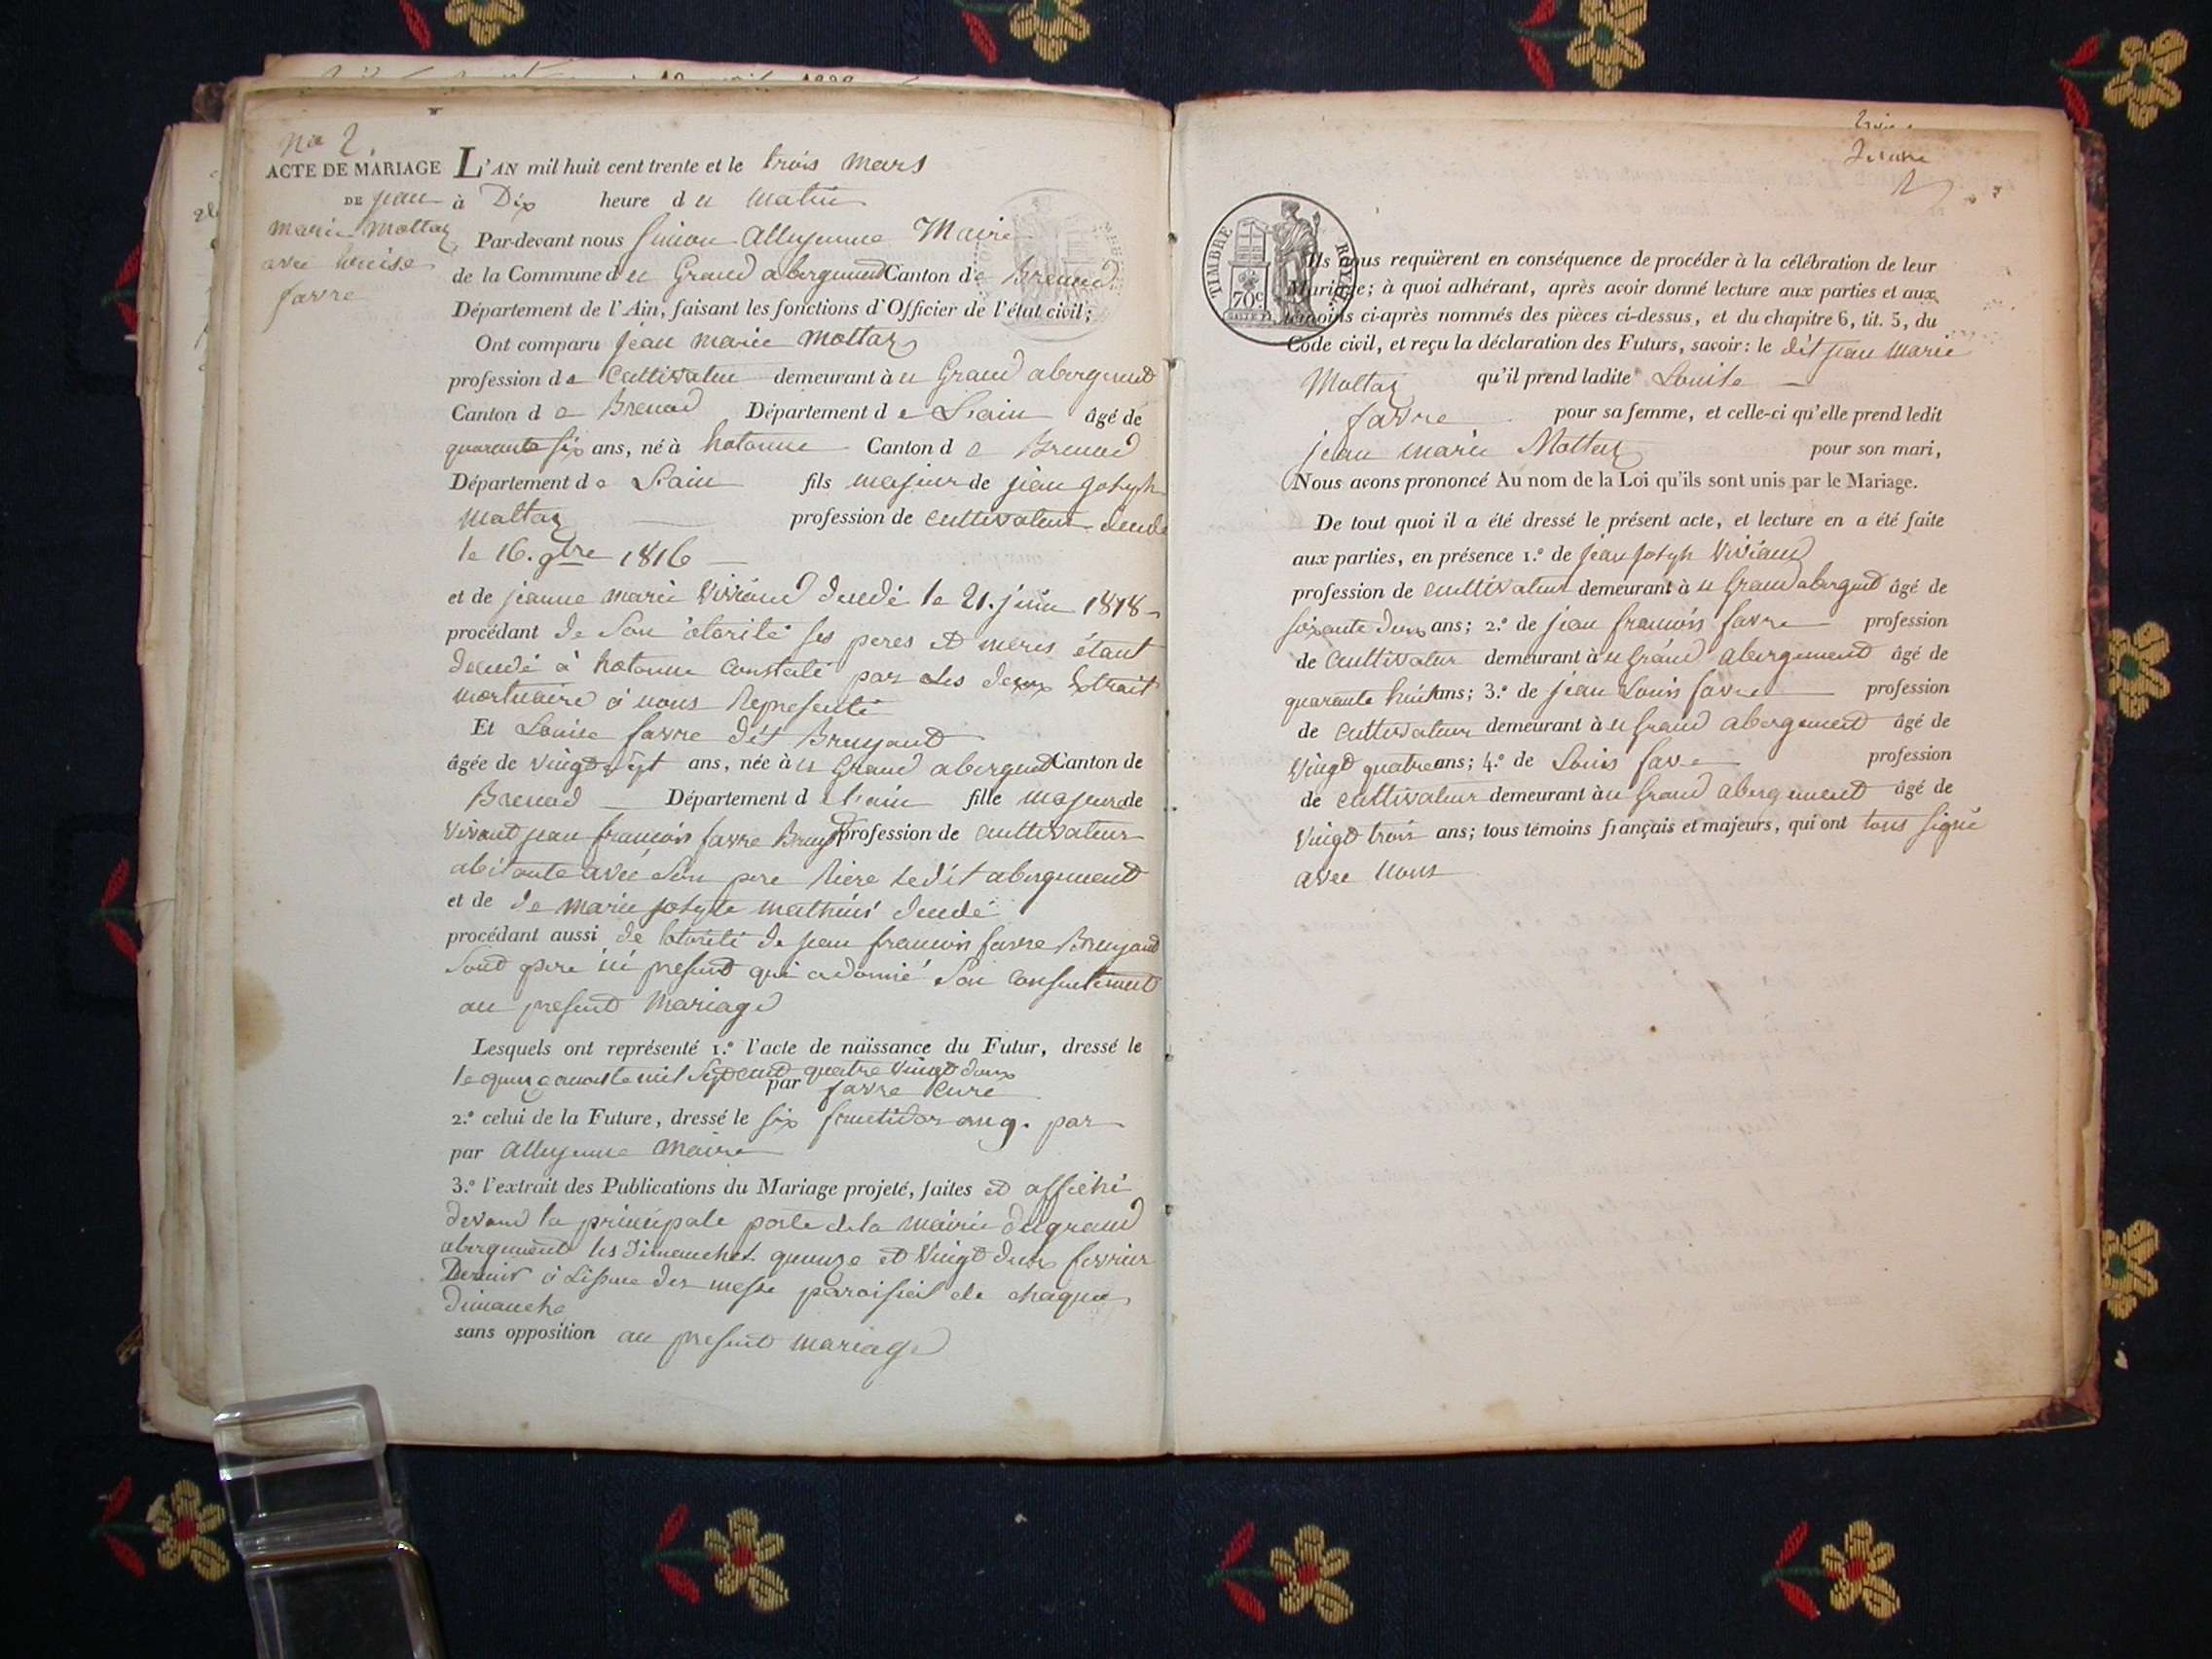 No 2.
ACTE DE MARIAGE
DE jean
marie Mottaz
avec Louise
favre
L'AN mil huit cent trente et le trois mars
à Dix heure du matin
Par-devant nous Simon alleyenne Maire
de la Commune du Grand abergement Canton de Brenod
Département de l'Ain, faisant les fonctions d'Officier de l'état civil;
Ont comparu jean marie Mottaz
profession de Cultivateu demeurant à u Grand abergement
Canton de Brenod Département de L'ain âgé de
quarante six ans, né à hotonne Canton de Brenod
Département de L'ain fils majeur de jean joseph
Mattaz profession de cultivateur décédé
le 16. 9bre 1816
et de jeanne marie Viviand décédé le 21. juin 1818
procédant de son otorité ses peres et meres étant
décédé à hotonne constaté par les deux Extrait
mortuaire à nous Representé
Et Louise favre dit Bruyand
âgée de vingt sept ans, née à u Grand abergement Canton de
Brenod Département de l'ain fille majeure de
vivant jean francois favre Bruyd profession de cultivateur
abitante avec son pere riere ledit abergement
et de de marie josephte mathieu décédé
procédant aussi de lotorité de jean francois favre Bruyand
sont pere ici present qui a donné son consentement
au present mariage
Lesquels ont représenté 1.º l'acte de naissance du Futur, dressé le
le quinze aoust mil sept cent quatre vingt doux
par favre Curé
2.º celui de la Future, dressé le six fructidor an 9. par
par alleyenne maire
3.º l'extrait des Publications du Mariage projeté, faites et affiché
devand la principale porte de la mairie du grand
abergement les dimanches quinze et vingt deux fevrier
Dernier à Lissue des messe paroissiel de chaque
dimanche
sans opposition au present mariage
TIMBRE ROYAL
70c
Ils nous requièrent en conséquence de procéder à la célébration de leur
Mariage; à quoi adhérant, après avoir donné lecture aux parties et aux
témoins ci-après nommés des pièces ci-dessus, et du chapitre 6, tit. 5, du
Code civil, et reçu la déclaration des Futurs, savoir: le dit jean marie
Mottaz qu'il prend ladite Louise
favre pour sa femme, et celle-ci qu'elle prend ledit
jean marie Mottaz pour son mari,
Nous avons prononcé Au nom de la Loi qu'ils sont unis par le Mariage.
De tout quoi il a été dressé le présent acte, et lecture en a été faite
aux parties, en présence 1.º de jean joseph Viviand
profession de cultivateur demeurant à u Grand abergement âgé de
soixante deux ans; 2.º de jean francois favre profession
de cultivateur demeurant à u Grand abergement âgé de
quarante huit ans; 3.º de jean Louis favre profession
de cultivateur demeurant à u Grand abergement âgé de
vingt quatre ans; 4.º de Louis favre profession
de cultivateur demeurant à u Grand abergement âgé de
vingt trois ans; tous témoins français et majeurs, qui ont tous signé
avec nous